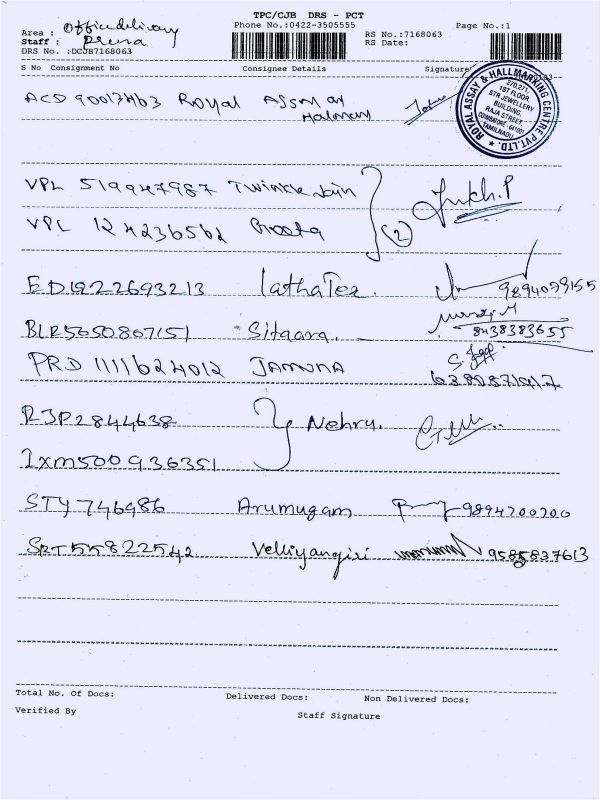 TPC/CJB DRS - PCT
Area : Officedelivery Phone No.:0422-3505555 Page No.:1
Staff : Prena RS No.:7168063
DRS No. :DCJB7168063 RS Date:
S No Consignment No Consignee Details Signature
ROYAL ASSAY & HALLMARKING CENTRE PVT.LTD.
270,271,
1ST FLOOR
STR JEWELLERY
BUILDING,
RAJA STREET,
COIMBATORE - 641001
TAMILNADU
ACD 90013463 Royal Assay
Halmark
VPL 519947987 Twinkle Jain
VPL 124236562 Geeta (2)
ED1922693213 Latha Tex. 9894099155
BLR5050807151 Sitaara. 8438383655
PRD 1111624012 JAMUNA
RJP2844638 Nehru.
Ixm500936351
STY746986 Arumugam 9894200200
SRT55822542 Velliyangiri 9585837613
Total No. Of Docs: Delivered Docs: Non Delivered Docs:
Verified By Staff Signature